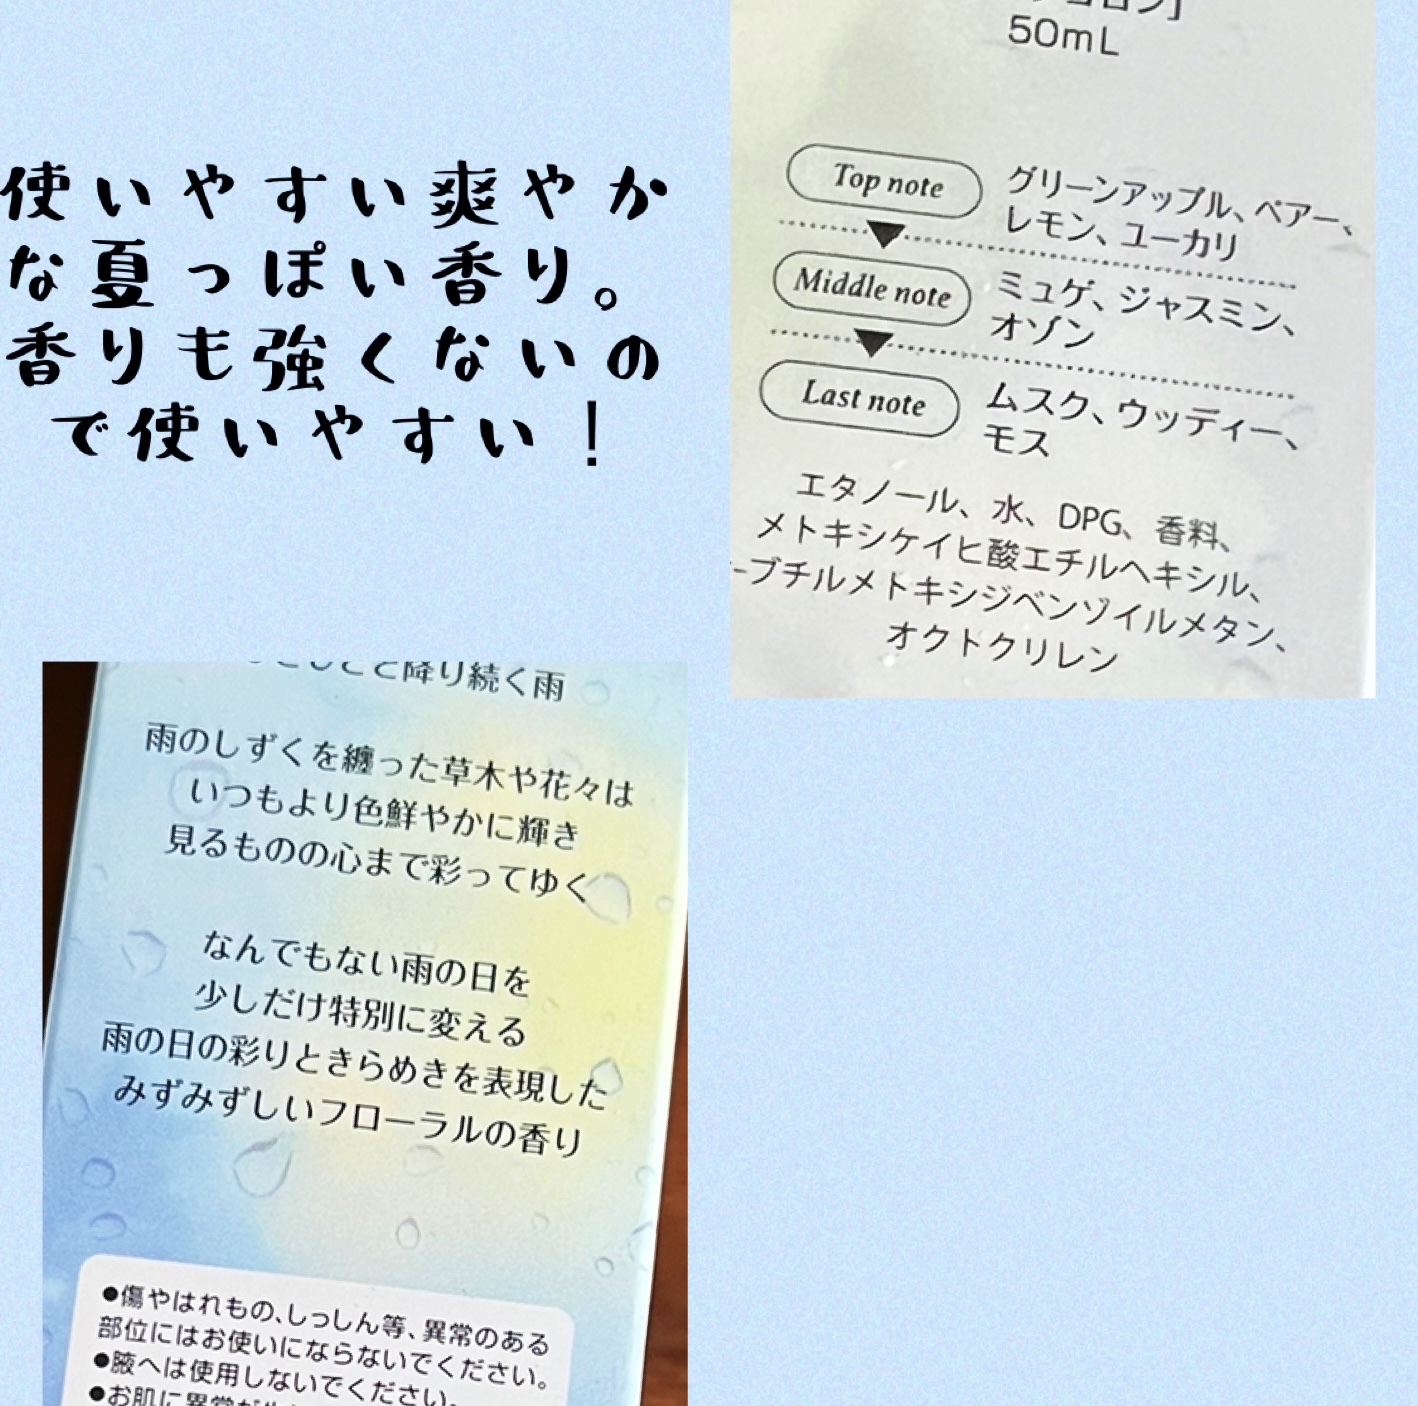 使いやすい爽やか
な夏っぽい香り。
香りも強くないの
で使いやすい！
50mL
Top note
グリーンアップル、ペアー、
レモン、ユーカリ
Middle note
ミュゲ、ジャスミン、
オゾン
Last note
ムスク、ウッディー、
モス
エタノール、水、DPG、香料、
メトキシケイヒ酸エチルヘキシル、
ーブチルメトキシジベンゾイルメタン、
オクトクリレン
降り続く雨
雨のしずくを纏った草木や花々は
いつもより色鮮やかに輝き
見るものの心まで彩ってゆく
なんでもない雨の日を
少しだけ特別に変える
雨の日の彩りときらめきを表現した
みずみずしいフローラルの香り
●傷やはれもの、しっしん等、異常のある
部位にはお使いにならないでください。
●腋へは使用しないでください。
●お肌に異常が